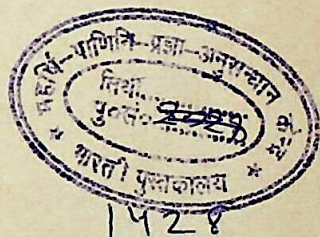 महर्षि-पाणिनि-प्रज्ञा-अनुसन्धान केन्द्र
तिथि..........
पु०सं०
* भारती पुस्तकालय *
1428